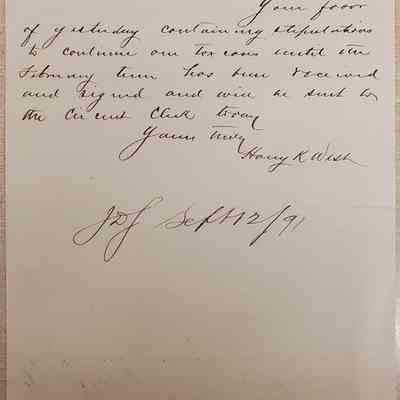 Your favor
of yesterday containing stipulations
to continue our tax cases until the
February term has been received
and signed and will be sent to
the Circuit Clerk today
Yours truly
Harry K West
JDJ Sept 12/91